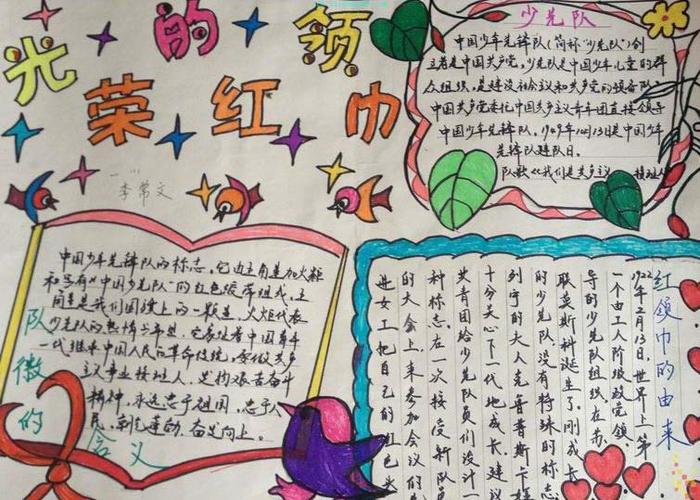 光荣的红领巾
李常文
少先队
中国少年先锋队(简称"少先队")创
立者是中国共产党,少先队是中国少年儿童的群
众组织,是建设社会主义和共产主义的预备队。
中国共产党委托中国共产主义青年团直接领导
中国少年先锋队,1949年10月13日是中国少年
先锋队建队日。
队歌《我们是共产主义接班人
队徽的含义
中国少年先锋队的标志,它由五角星加火炬
和写有"中国少先队"的红色绶带组成,五
角星是我们国旗上的一颗星,火炬代表
少先队的热情与年望,它象征着中国青年
一代继承中国人民的革命传统,争做共产
主义事业接班人,是构艰苦奋斗
精神,永远忠于祖国,忠于人
民,奋发向上。
红领巾的由来
1922年2月13日,世界上第
一个由工人阶级政党领
导的少先队组织在苏
联莫斯科诞生了。刚成
的少先队,没有特殊的标志
列宁的夫人克鲁普斯卡娅
十分关心下一代地成长,建议
共青团给少先队员们设计一
种标志,在一次接受新队员
的大会上,来参加会议的
进女工把自己的红色头